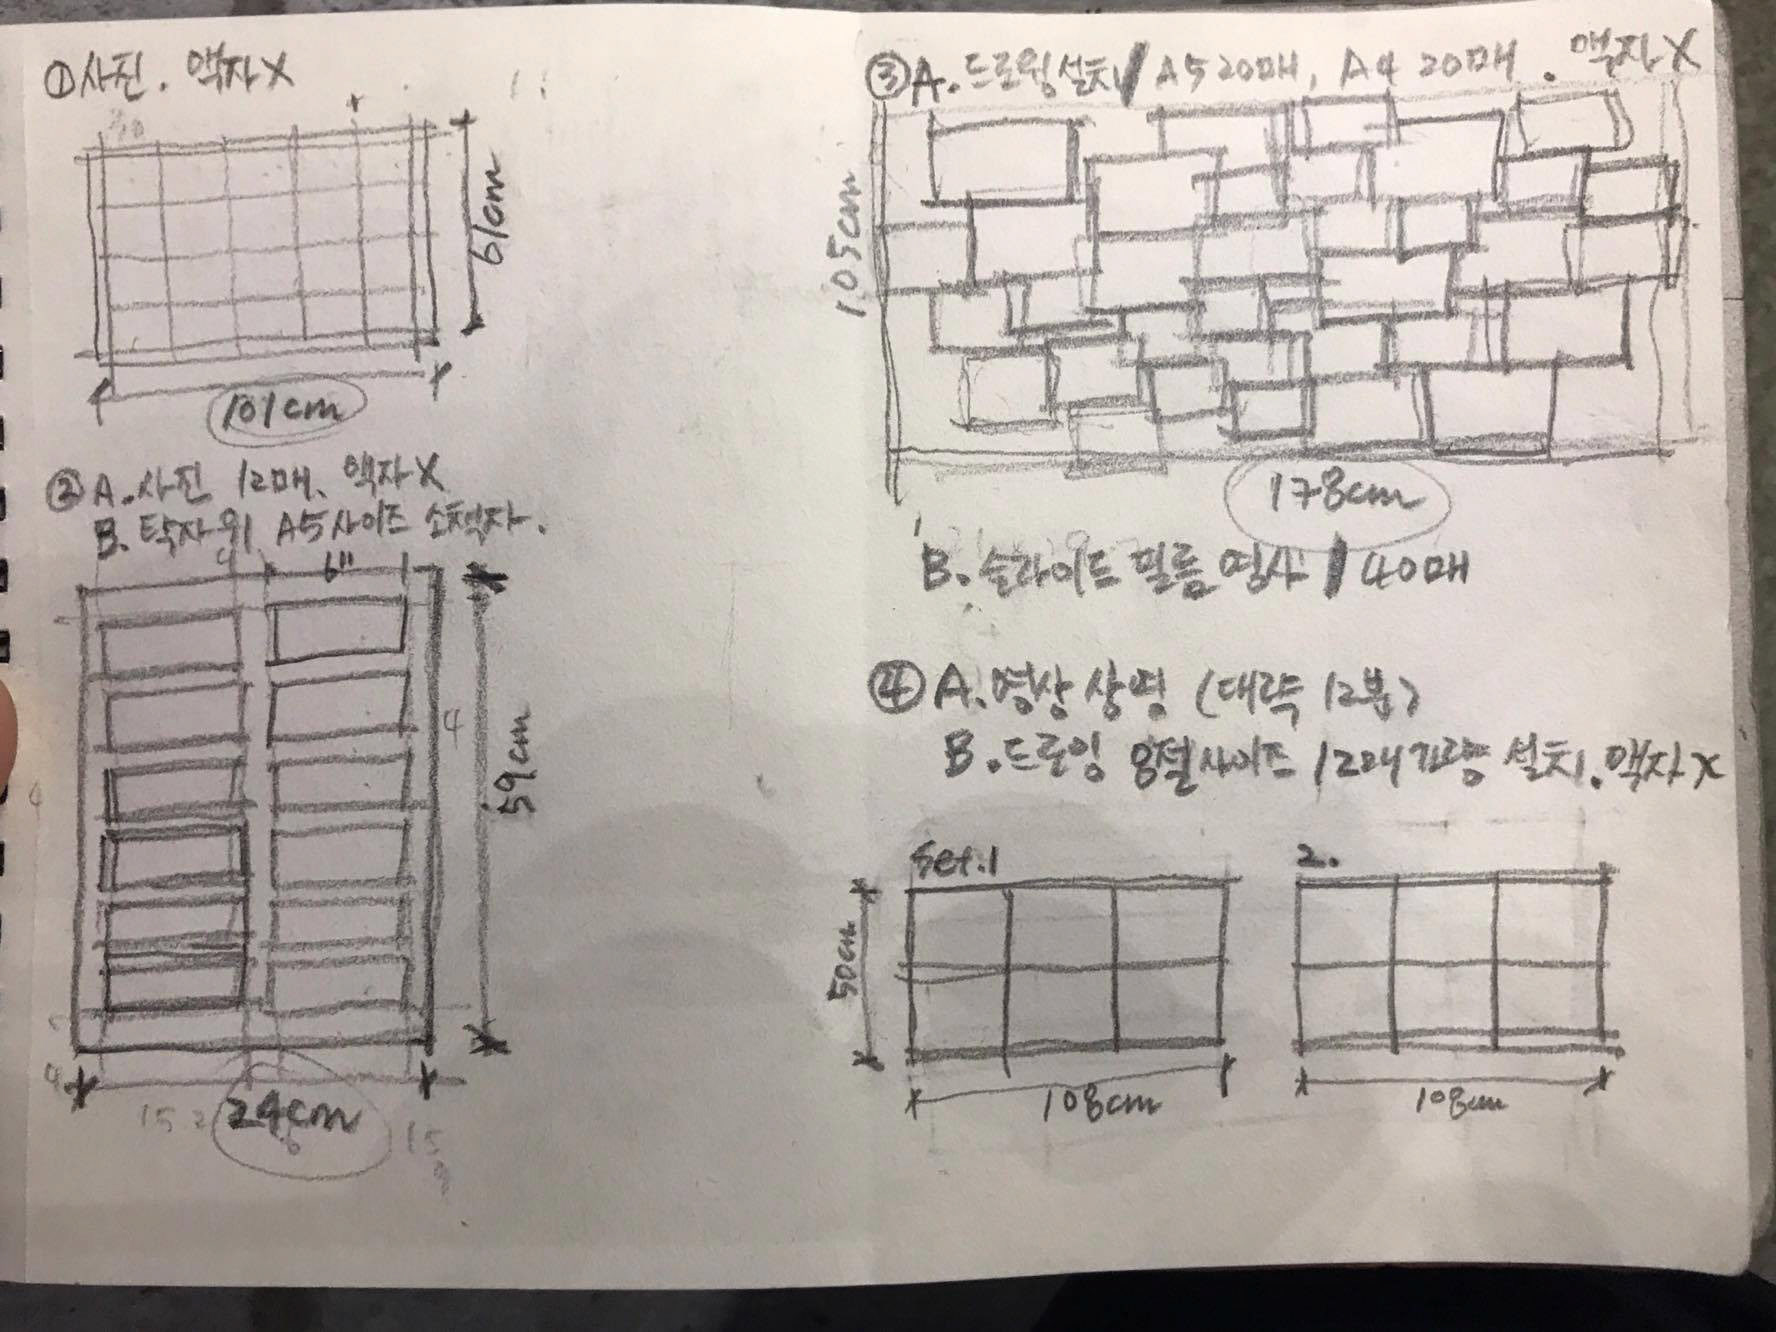 ①사진. 액자X
61cm
101cm
②A.사진 12매. 액자X
B. 탁자위 A5사이즈 소책자.
6"
4
59cm
24cm
③A.드로잉설치/A5 20매, A4 20매. 액자X
105cm
178cm
B.슬라이드 필름 영사/40매
④A.영상 상영 (대략 12분)
B.드로잉 8절사이즈 12매가량 설치.액자X
Set.1
2.
50cm
108cm
108cm